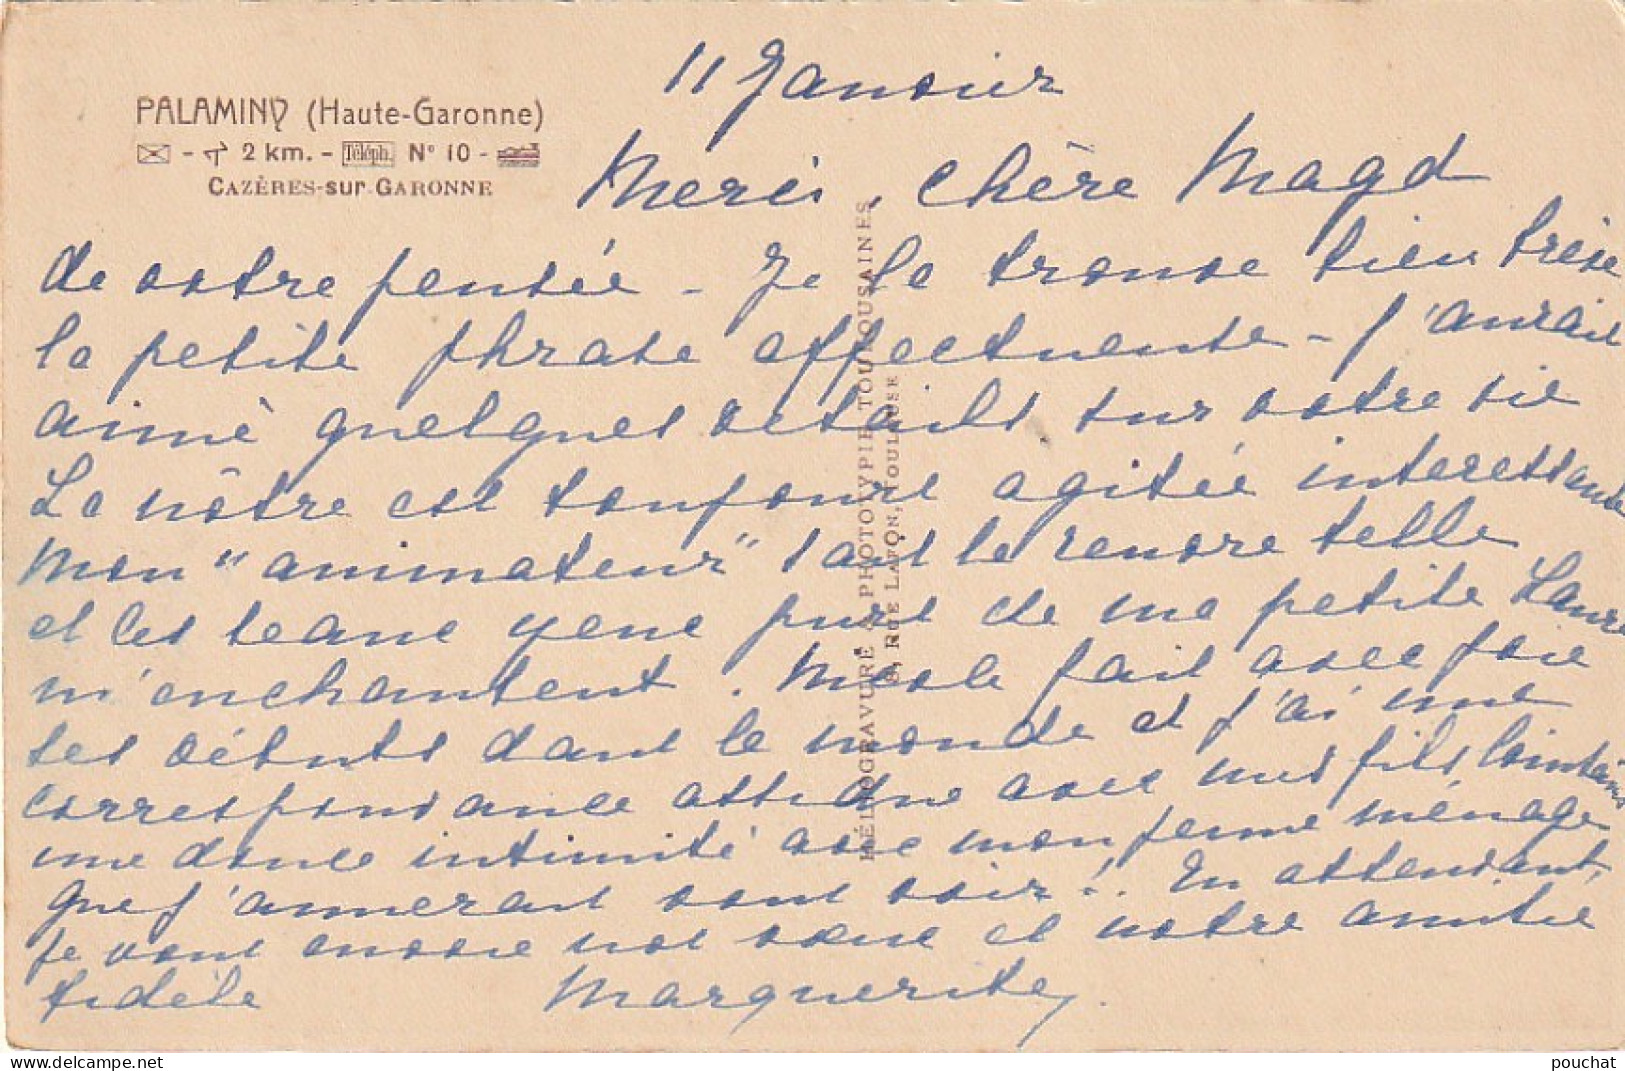 11 Janvier
PALAMINY (Haute-Garonne)
2 km. - Téléph. N° 10 -
CAZÈRES-sur-GARONNE
Merci, chère Magd
de votre pensée - Je la trouve bien brève
la petite phrase affectueuse - J'aurais
aimé quelques détails sur votre vie
La nôtre est toujours agitée intéressante
Mon "animateur" sait la rendre telle
et les beaux yeux purs de ma petite Laure
m'enchantent. Nicole fait avec joie
ses débuts dans le monde et j'ai une
correspondance assidue avec mes fils lointains
une douce intimité avec mon jeune ménage
que j'aimerais vous voir!. En attendant,
je vous envoie nos vœux et notre amitié
fidèle Marguerite.
HÉLIOGRAVURE & PHOTOTYPIE TOULOUSAINES
RUE LAFON, TOULOUSE
delcampe.net
pouchat